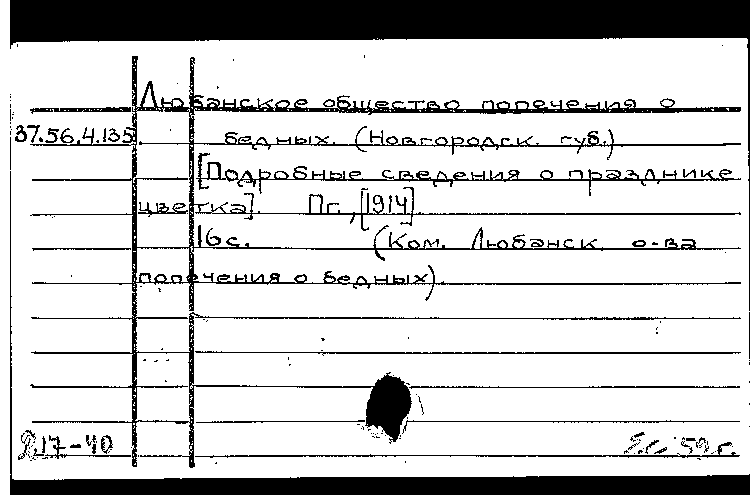 Любанское общество попечения о
37.56.4.135. бедных. (Новгородск. губ.)
[Подробные сведения о празднике
цветка]. Пг., [1914].
16 с. (Ком. Любанск. о-ва
попечения о бедных).
17-40 59 г.